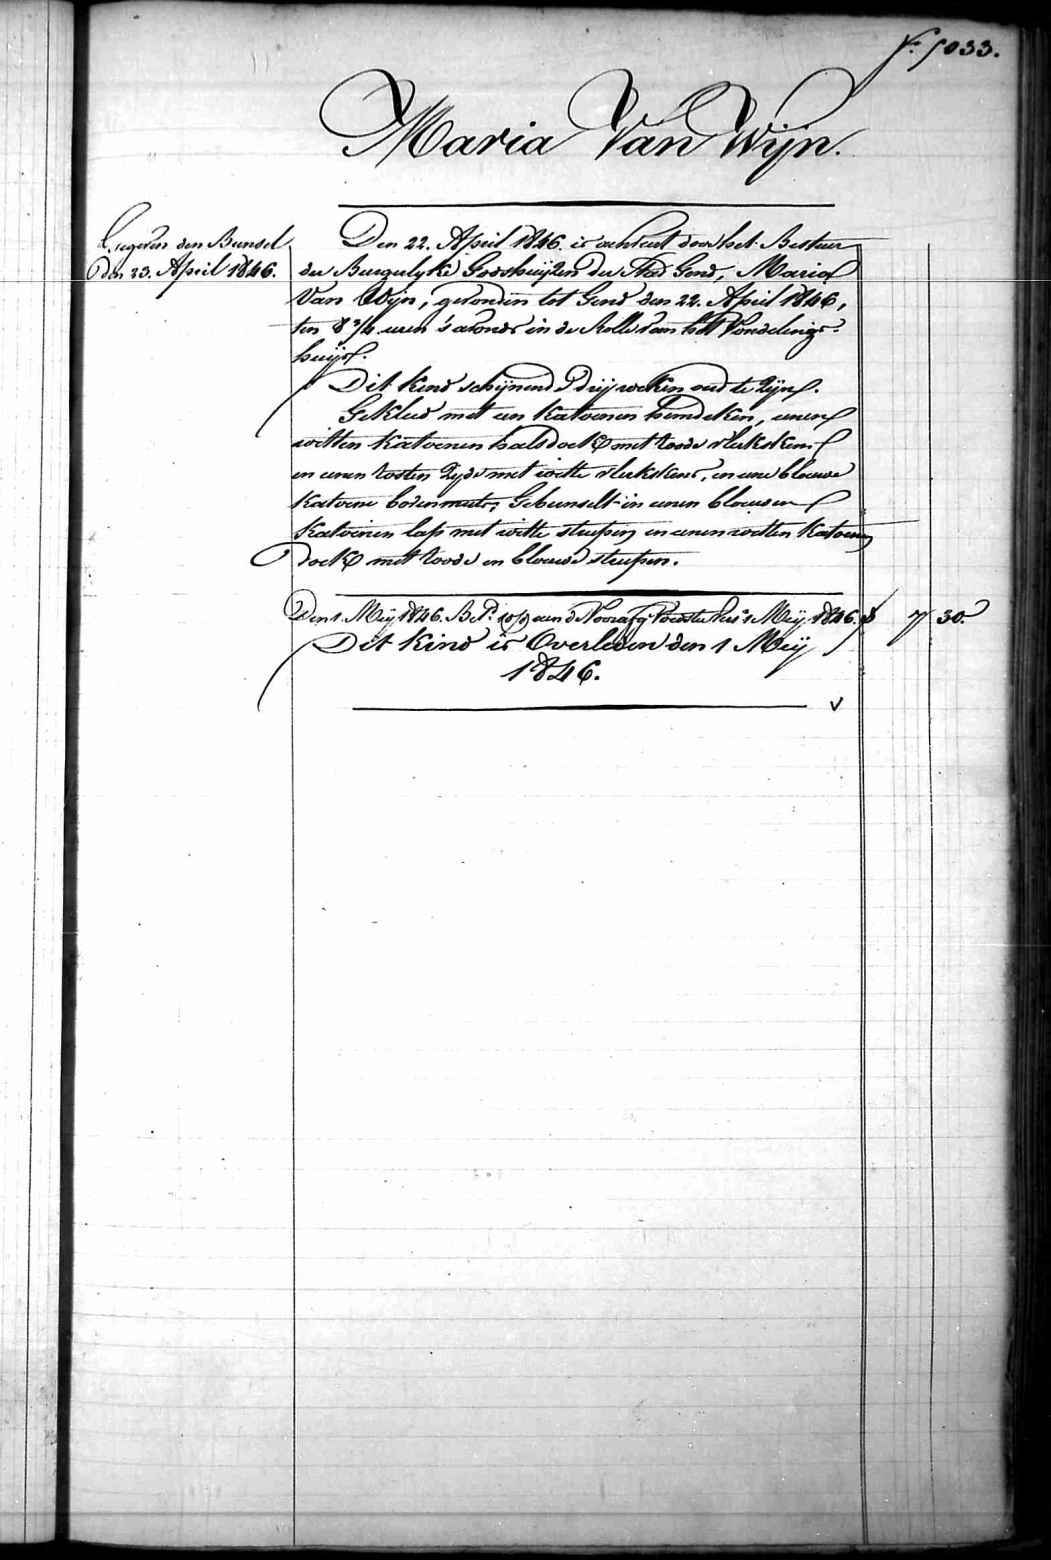 f. 1033.
Maria Van Wijn.
Gegeven den Bunsel
Den 23. April 1846.
Den 22. April 1846. is aenveert door het Bestuer
der Burgerlyke Godshuijzen der Stad Gend, Maria
Van Wijn, gevonden tot Gend den 22. April 1846,
ten 8 3/4 uren 's avonds in de Rolle van het Vondelings-
huijs.
Dit kind schijnende drij weken oud te zijn.
Gekleed met een katoenen hemdeken, eenen
witten katoenen halsdoek met roode vlekskens
en eenen rosten zyde met witte vlekskens, en eene blauwe
katoene bovenmuts; Gebunselt in eenen blauwen
katoenen lap met witte streepen en eenen witten katoenen
doek met roode en blauwe streepen.
Den 1. Meij 1846. Bet. aen de Voorafg. Voedster tot 1 Meij 1846. 7 30.
Dit kind is Overleden den 1 Meij
1846.